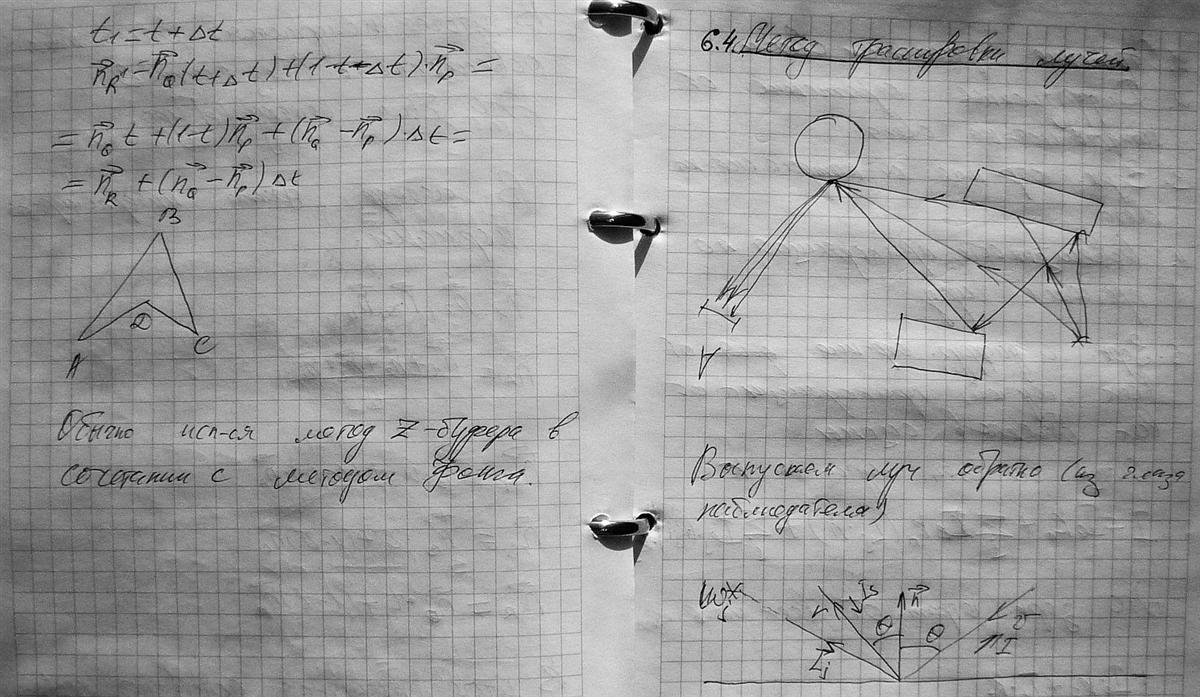 t₁ = t + Δt
n⃗_R¹ = n⃗_Q(t+Δt) + (1-t+Δt)·n⃗_P =
= n⃗_Q t + (1-t)n⃗_P + (n⃗_Q - n⃗_P)·Δt =
= n⃗_R + (n⃗_Q - n⃗_P)Δt
B
D
A
C
Обычно исп-ся метод Z-буфера в
сочетании с методом Фонга.
6.4. Метод трассировки лучей
Выпускаем луч обратно (из глаза
наблюдателя)
r
I_s
n⃗
θ
θ
v
I
L_j